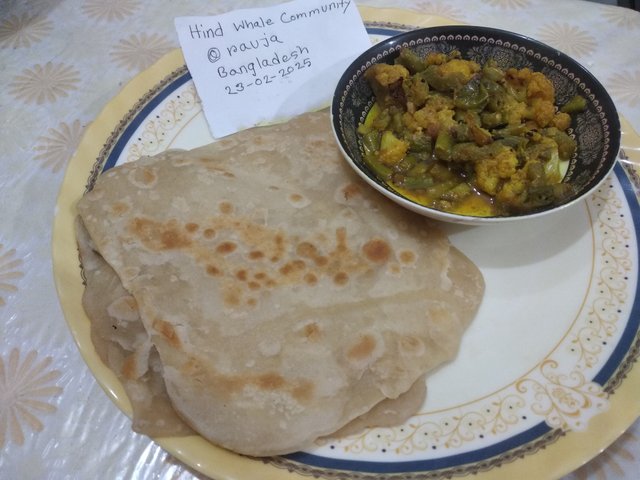 Hind Whale Community
@rauja
Bangladesh
23-02-2025